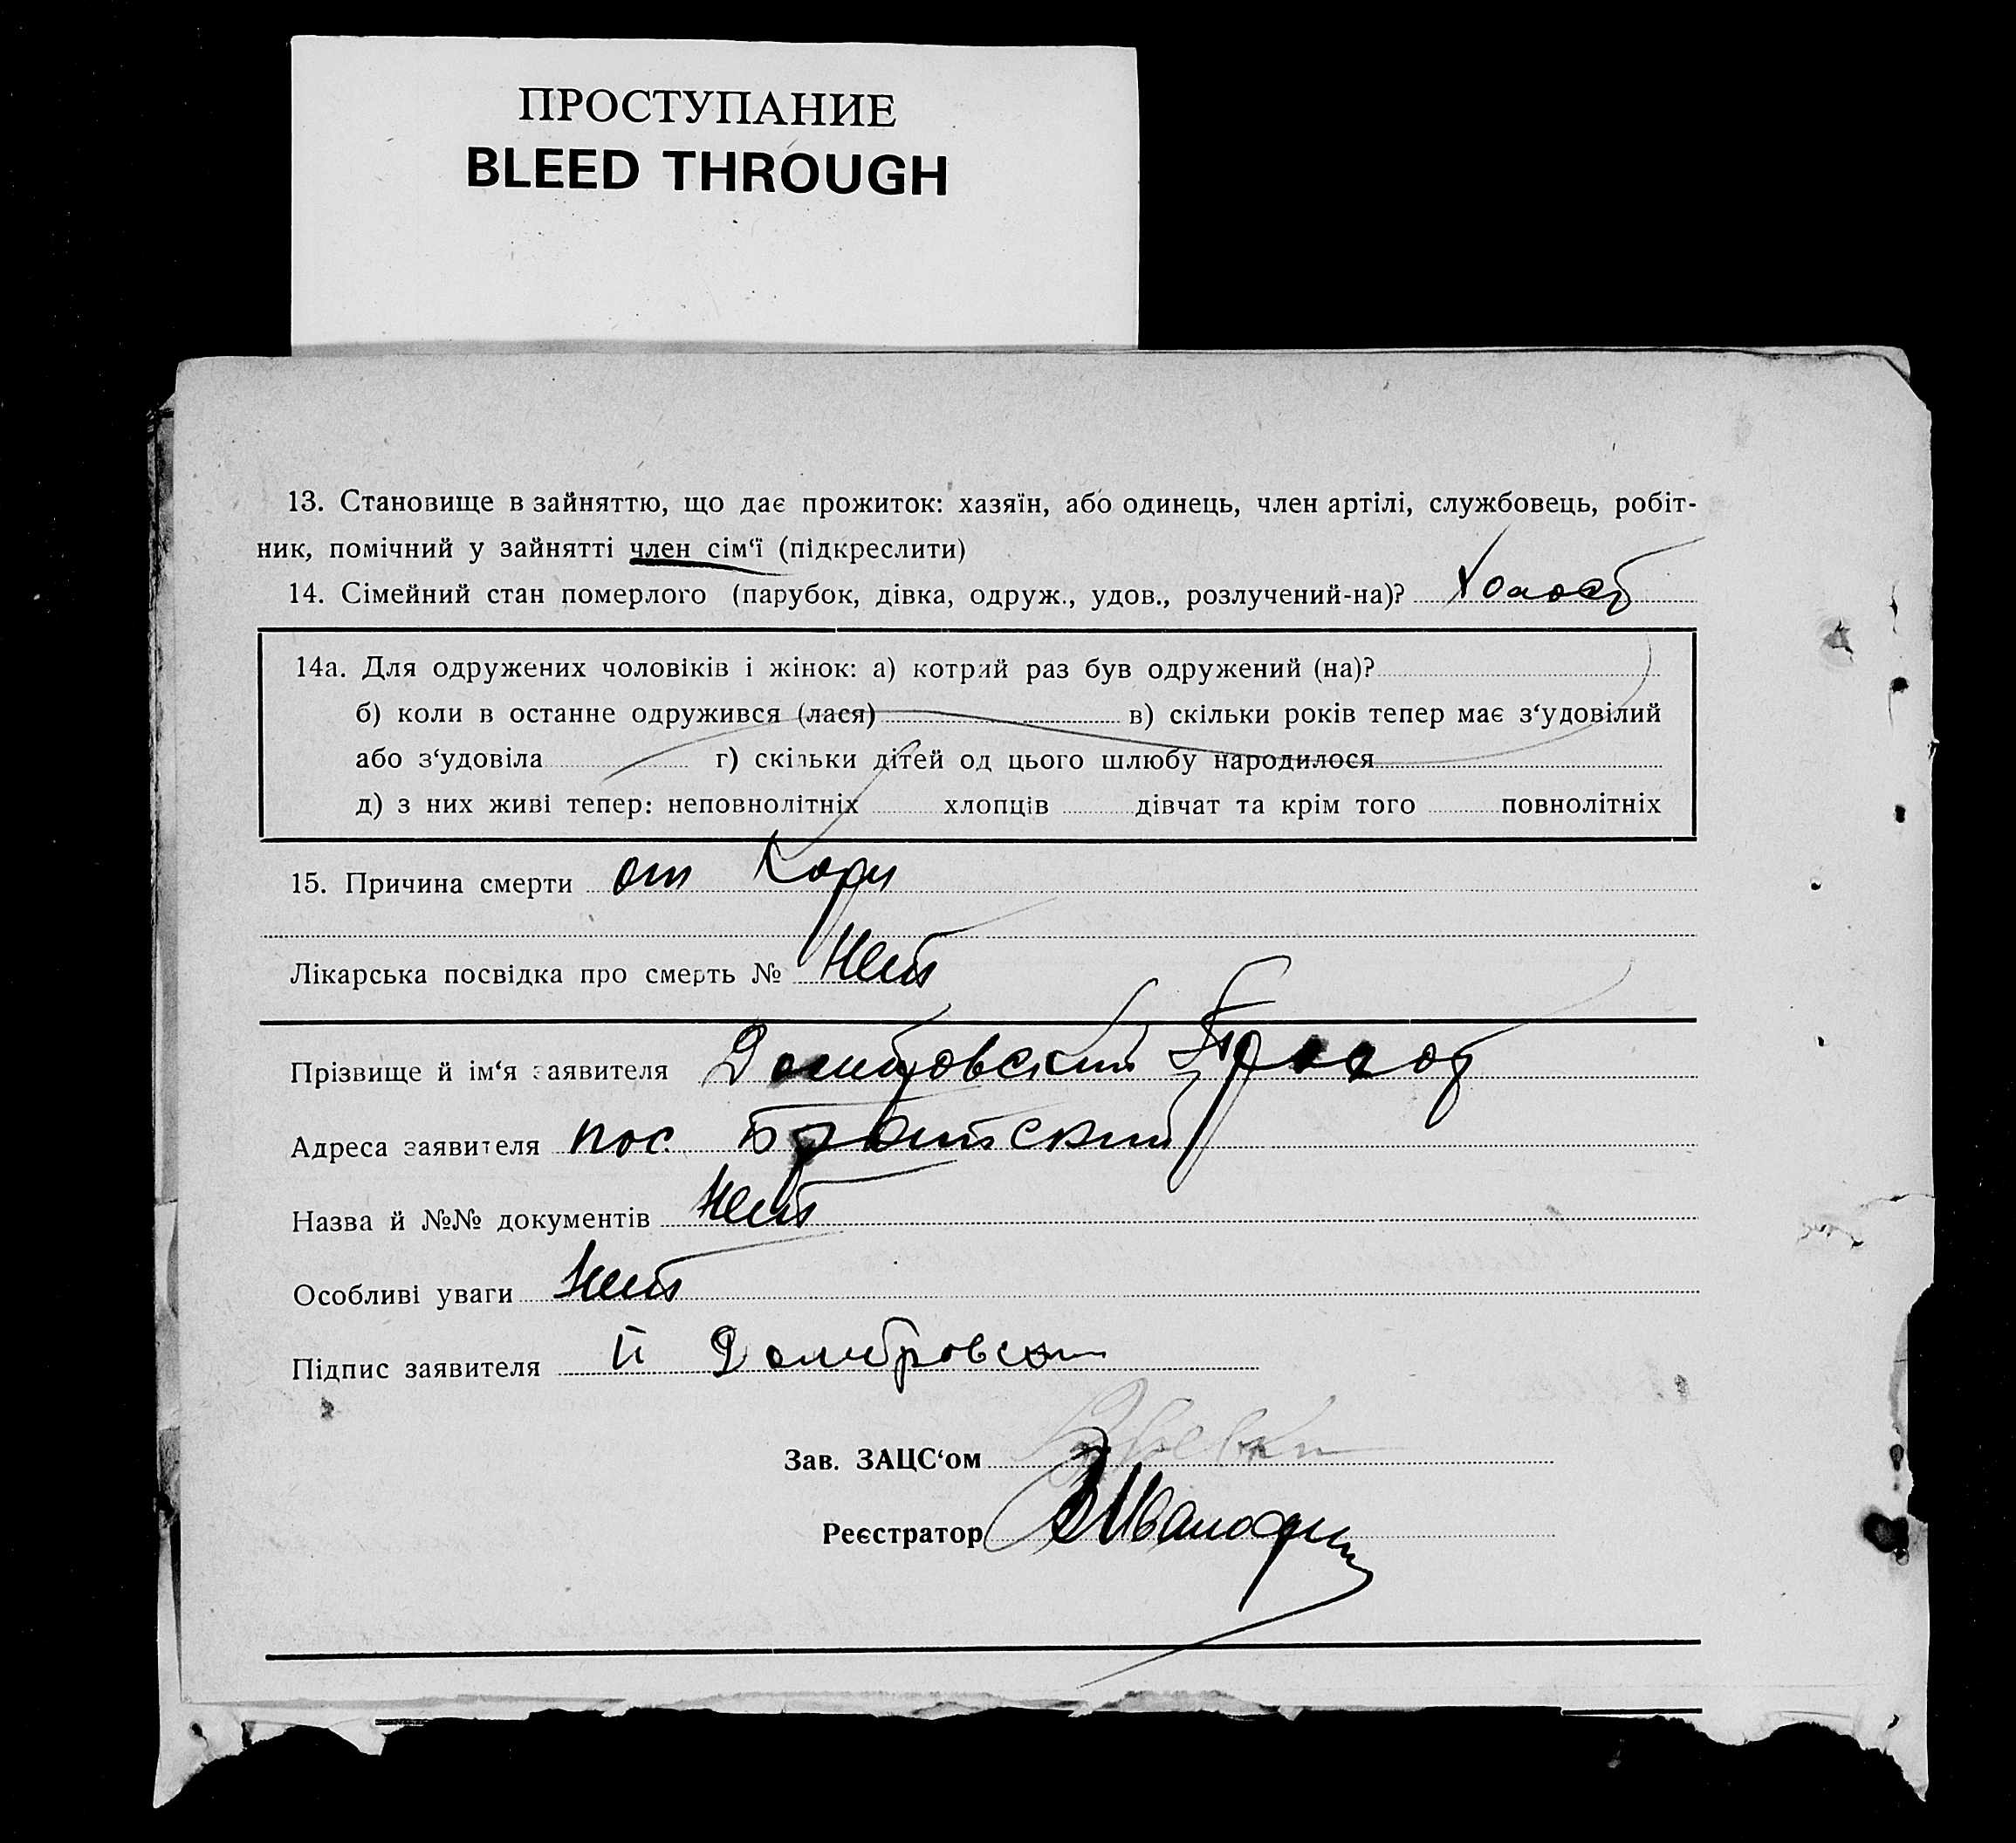 ПРОСТУПАНИЕ
BLEED THROUGH
13. Становище в зайняттю, що дає прожиток: хазяїн, або одинець, член артілі, службовець, робіт-
ник, помічний у зайнятті член сім‘ї (підкреслити)
14. Сімейний стан померлого (парубок, дівка, одруж., удов., розлучений-на)? Холост
14а. Для одружених чоловіків і жінок: а) котрий раз був одружений (на)?
б) коли в останне одружився (лася) в) скільки років тепер має з‘удовілий
або з‘удовіла г) скільки дітей од цього шлюбу народилося
д) з них живі тепер: неповнолітніх хлопців дівчат та крім того повнолітніх
15. Причина смерти от Кори
Лікарська посвідка про смерть № Нет
Прізвище й ім‘я заявителя Домбровский
Адреса заявителя пос.
Назва й №№ документів Нет
Особливі уваги Нет
Підпис заявителя П Домбровски
Зав. ЗАЦС‘ом
Реєстратор